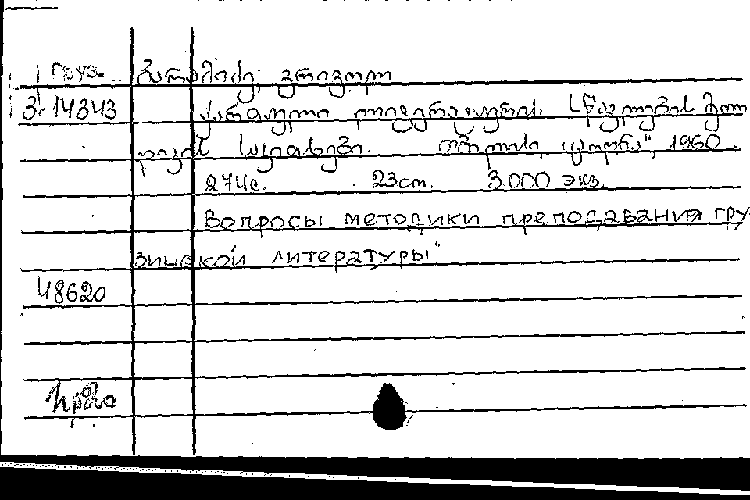 Груз. ბარამიძე, გრიგოლ
3-14343 ქართული ლიტერატურის სწავლების მეთო
დიკის საკითხები. თბილისი, "ცოდნა", 1960.
274с. 23cm. 3.000 экз.
Вопросы методики преподавания гру
зинской литературы"
48620